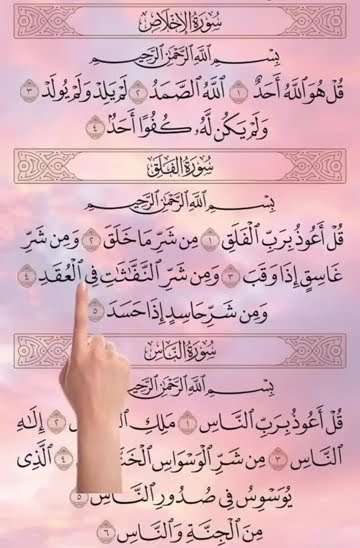 سُورَةُ الإِخْلَاصِ
بِسْمِ ٱللَّهِ ٱلرَّحْمَٰنِ ٱلرَّحِيمِ
قُلْ هُوَ ٱللَّهُ أَحَدٌ ١ ٱللَّهُ ٱلصَّمَدُ ٢ لَمْ يَلِدْ وَلَمْ يُولَدْ ٣
وَلَمْ يَكُن لَّهُۥ كُفُوًا أَحَدٌۢ ٤
سُورَةُ الفَلَقِ
بِسْمِ ٱللَّهِ ٱلرَّحْمَٰنِ ٱلرَّحِيمِ
قُلْ أَعُوذُ بِرَبِّ ٱلْفَلَقِ ١ مِن شَرِّ مَا خَلَقَ ٢ وَمِن شَرِّ
غَاسِقٍ إِذَا وَقَبَ ٣ وَمِن شَرِّ ٱلنَّفَّٰثَٰتِ فِى ٱلْعُقَدِ ٤
وَمِن شَرِّ حَاسِدٍ إِذَا حَسَدَ ٥
سُورَةُ النَّاسِ
بِسْمِ ٱللَّهِ ٱلرَّحْمَٰنِ ٱلرَّحِيمِ
قُلْ أَعُوذُ بِرَبِّ ٱلنَّاسِ ١ مَلِكِ ٢ إِلَٰهِ
ٱلنَّاسِ ٣ مِن شَرِّ ٱلْوَسْوَاسِ ٤ ٱلَّذِى
يُوَسْوِسُ فِى صُدُورِ ٱلنَّاسِ ٥
مِنَ ٱلْجِنَّةِ وَٱلنَّاسِ ٦